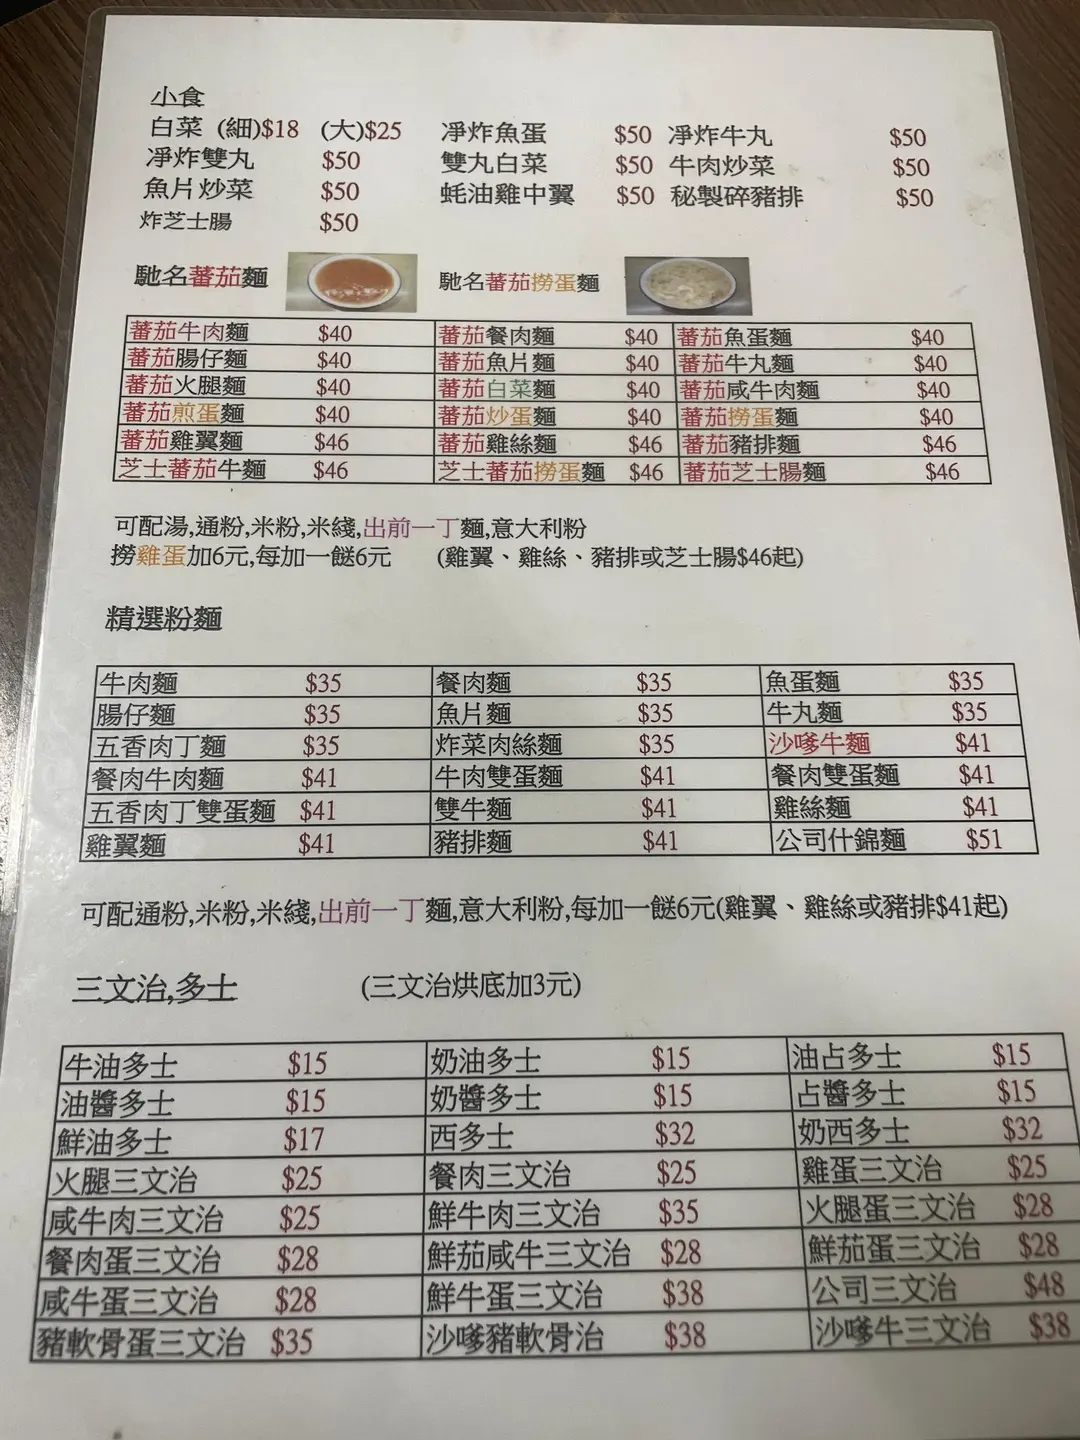 小食
白菜 (細)$18 (大)$25 凈炸魚蛋 $50 凈炸牛丸 $50
凈炸雙丸 $50 雙丸白菜 $50 牛肉炒菜 $50
魚片炒菜 $50 蚝油雞中翼 $50 秘製碎豬排 $50
炸芝士腸 $50
馳名蕃茄麵 馳名蕃茄撈蛋麵
蕃茄牛肉麵 $40 蕃茄餐肉麵 $40 蕃茄魚蛋麵 $40
蕃茄腸仔麵 $40 蕃茄魚片麵 $40 蕃茄牛丸麵 $40
蕃茄火腿麵 $40 蕃茄白菜麵 $40 蕃茄咸牛肉麵 $40
蕃茄煎蛋麵 $40 蕃茄炒蛋麵 $40 蕃茄撈蛋麵 $40
蕃茄雞翼麵 $46 蕃茄雞絲麵 $46 蕃茄豬排麵 $46
芝士蕃茄牛麵 $46 芝士蕃茄撈蛋麵 $46 蕃茄芝士腸麵 $46
可配湯,通粉,米粉,米綫,出前一丁麵,意大利粉
撈雞蛋加6元,每加一餸6元 (雞翼、雞絲、豬排或芝士腸$46起)
精選粉麵
牛肉麵 $35 餐肉麵 $35 魚蛋麵 $35
腸仔麵 $35 魚片麵 $35 牛丸麵 $35
五香肉丁麵 $35 炸菜肉絲麵 $35 沙嗲牛麵 $41
餐肉牛肉麵 $41 牛肉雙蛋麵 $41 餐肉雙蛋麵 $41
五香肉丁雙蛋麵 $41 雙牛麵 $41 雞絲麵 $41
雞翼麵 $41 豬排麵 $41 公司什錦麵 $51
可配通粉,米粉,米綫,出前一丁麵,意大利粉,每加一餸6元(雞翼、雞絲或豬排$41起)
三文治,多士 (三文治烘底加3元)
牛油多士 $15 奶油多士 $15 油占多士 $15
油醬多士 $15 奶醬多士 $15 占醬多士 $15
鮮油多士 $17 西多士 $32 奶西多士 $32
火腿三文治 $25 餐肉三文治 $25 雞蛋三文治 $25
咸牛肉三文治 $25 鮮牛肉三文治 $35 火腿蛋三文治 $28
餐肉蛋三文治 $28 鮮茄咸牛三文治 $28 鮮茄蛋三文治 $28
咸牛蛋三文治 $28 鮮牛蛋三文治 $38 公司三文治 $48
豬軟骨蛋三文治 $35 沙嗲豬軟骨治 $38 沙嗲牛三文治 $38